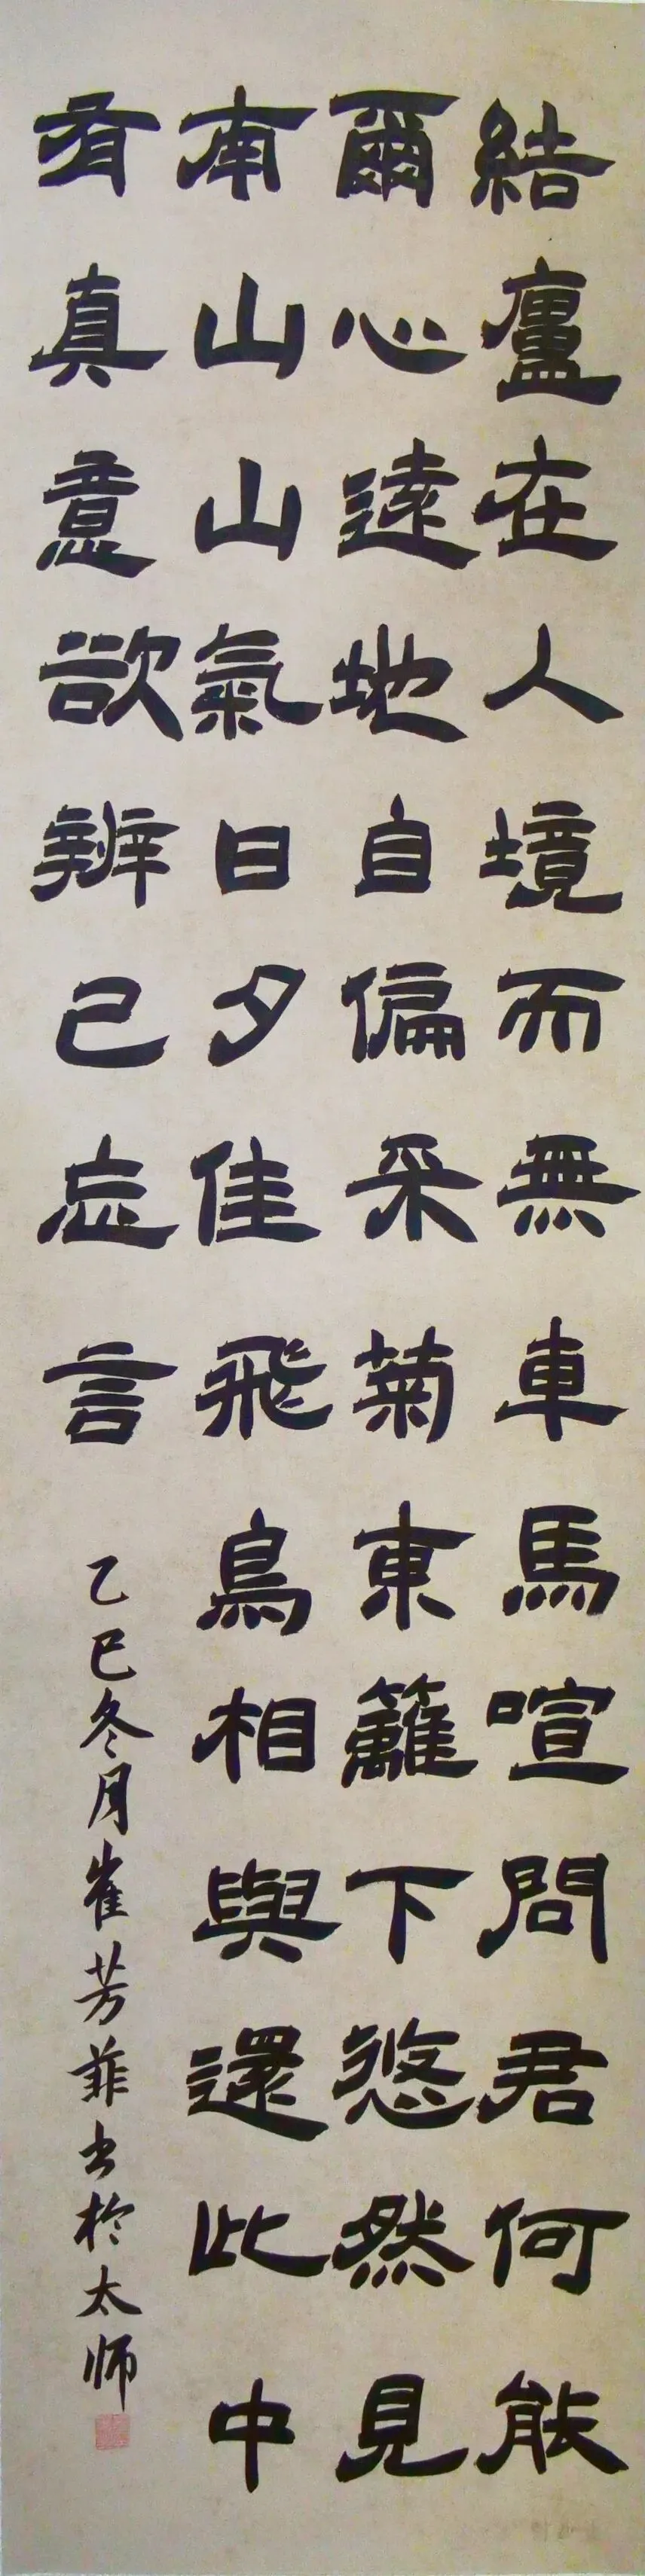 結廬在人境而無車馬喧問君何能
爾心遠地自偏采菊東籬下悠然見
南山山氣日夕佳飛鳥相與還此中
有真意欲辨已忘言
乙巳冬月崔芳菲书於太师